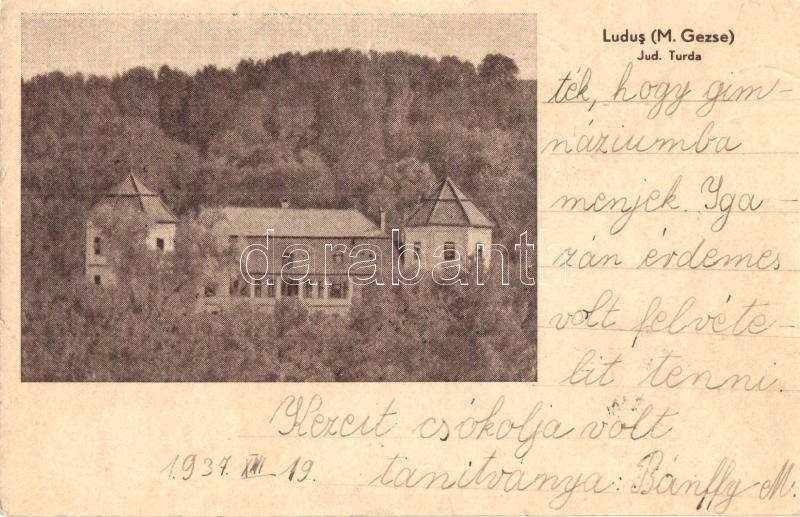 Luduş (M. Gezse)
Jud. Turda
ték, hogy gim-
náziumba
menjek. Iga-
zán érdemes
volt felvéte-
lit tenni.
Kezeit csókolja volt
1937. 19. tanitványa: Bánffy M.
darabanth